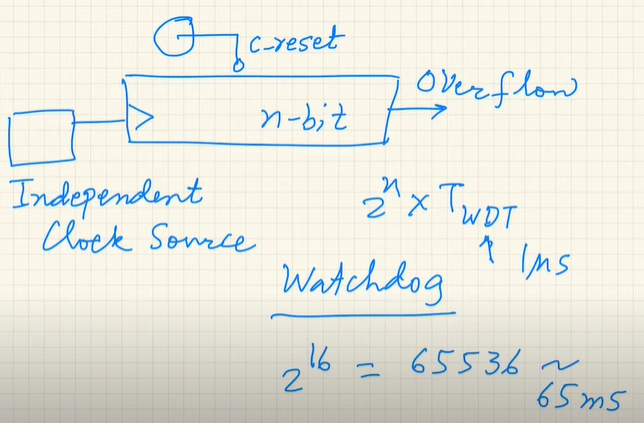 c-reset
Overflow
n-bit
Independent
Clock Source
2ⁿ x T_WDT
1ms
Watchdog
2¹⁶ = 65536 ~
65ms